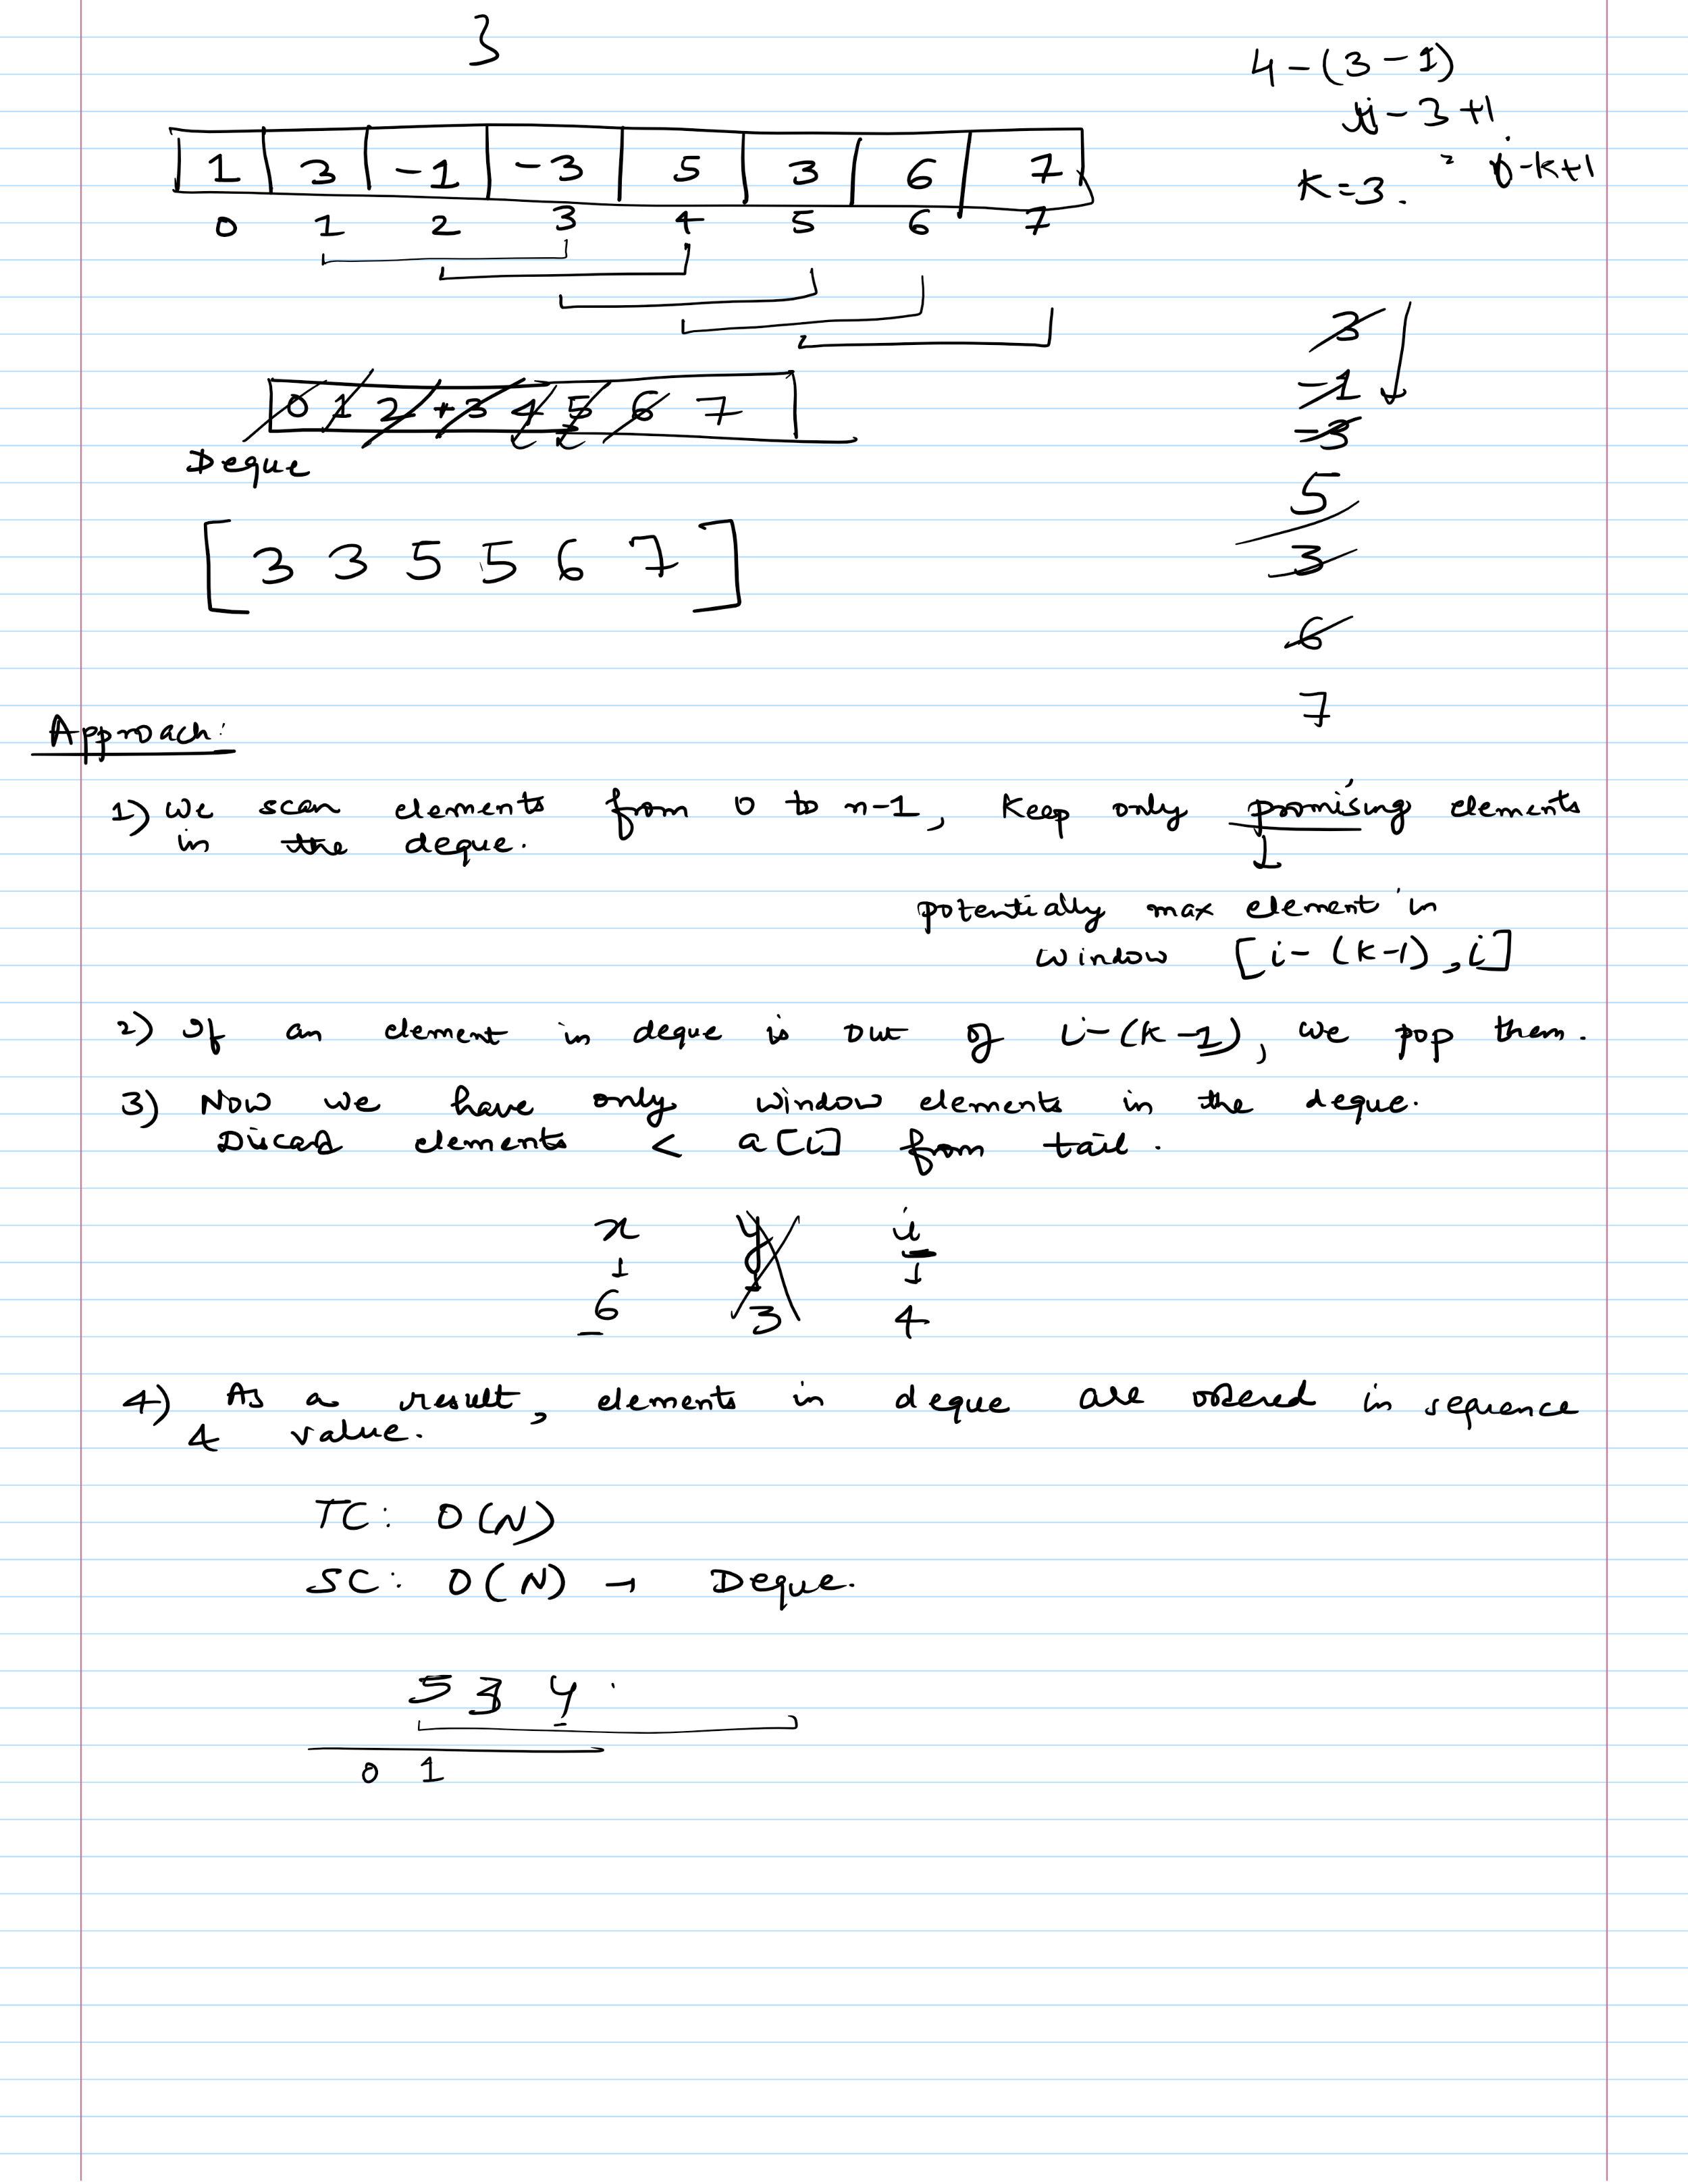 }
4-(3-1)
j-3+1
K=3. j-k+1
1 3 -1 -3 5 3 6 7
0 1 2 3 4 5 6 7
0 1 2 3 4 5 6 7
Deque
[3 3 5 5 6 7]
3
-1
-3
5
3
6
7
Approach:
1) We scan elements from 0 to n-1, Keep only promising elements
in the deque.
potentially max element in
window [i-(k-1), i]
2) If an element in deque is out of i-(k-1), we pop them.
3) Now we have only window elements in the deque.
Discard elements < a[i] from tail.
x y i
6 3 4
4) As a result, elements in deque are ordered in sequence
& value.
TC: O(N)
SC: O(N) → Deque.
5 3 4
0 1